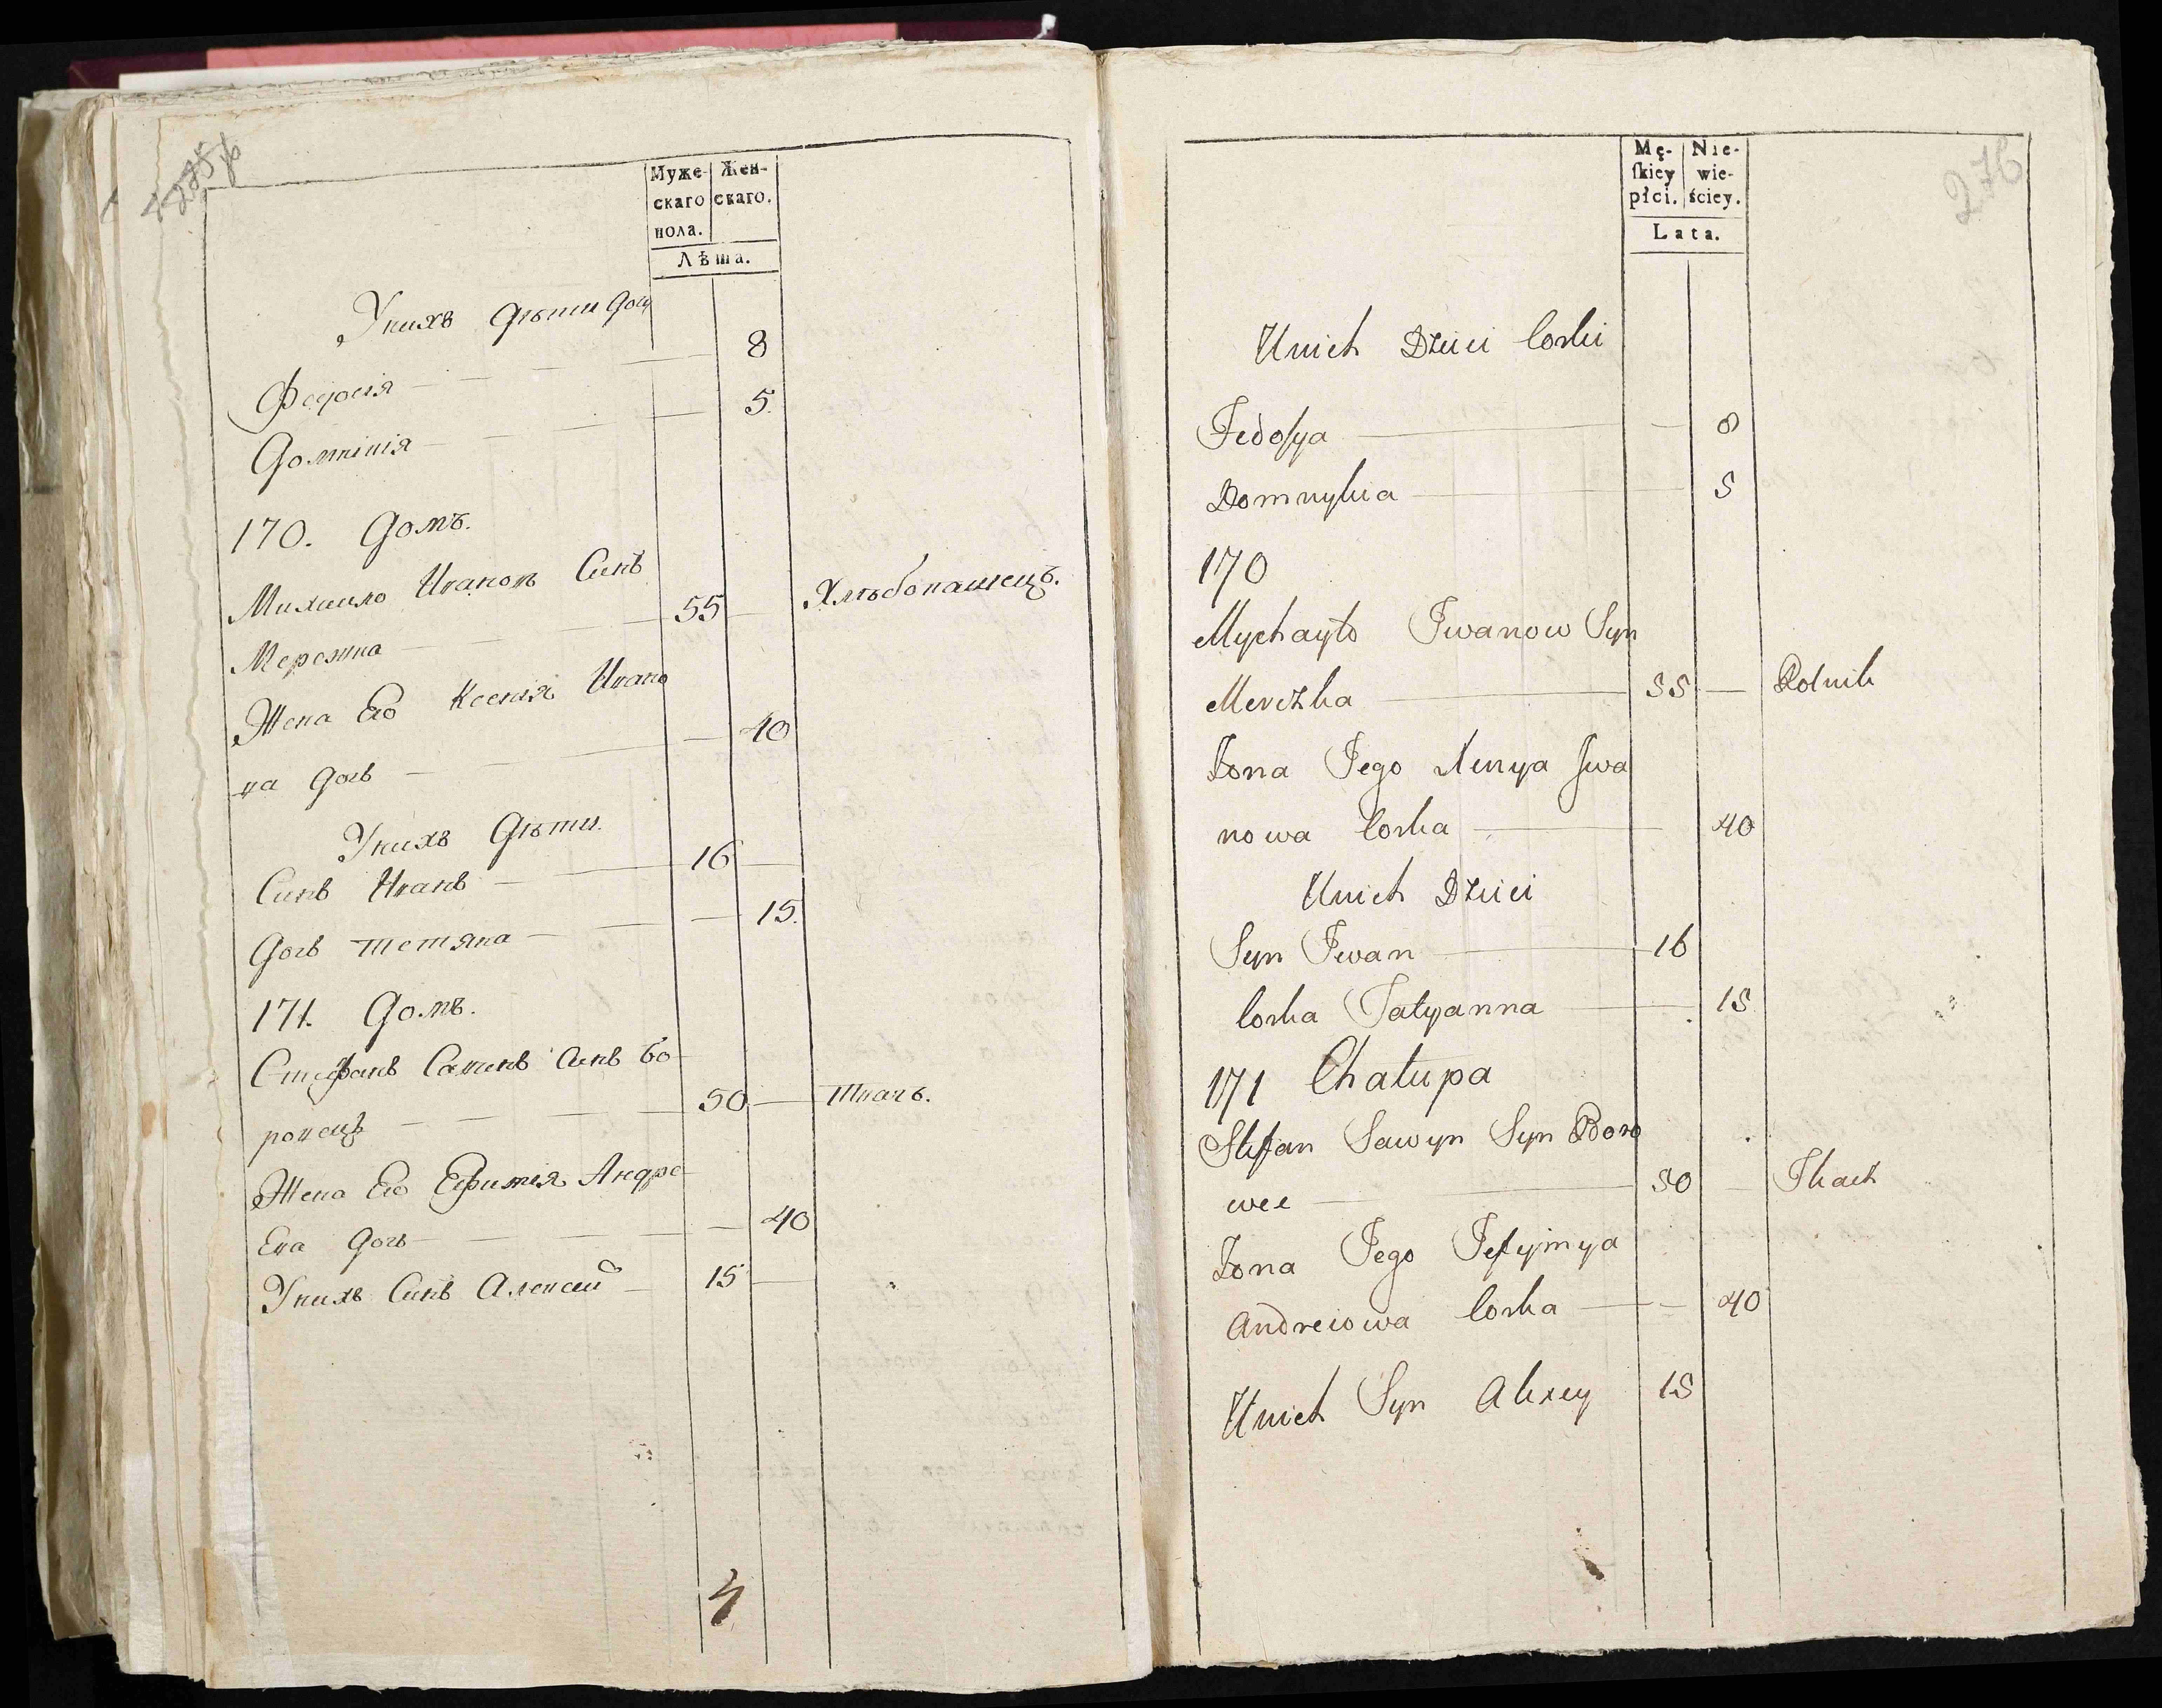 Муже-
скаго
пола.
Жен-
скаго.
Лѣта.
Унихъ Дѣти Доч
Федосія 8
Домникія 5.
170. Домъ.
Михаило Ивановъ Синъ
Мережка 55 Хлѣбопашецъ.
Жена Его Ксенія Ивано
ва Дочь 40
Унихъ Дѣти.
Синъ Иванъ 16
Дочь Тетяна 15.
171. Домъ.
Стефанъ Савинъ Синъ Бо
ровецъ 50 Ткачъ.
Жена Его Ефимія Андре
Ева Дочь 40
Унихъ Синъ Алексей 15
4
276
Mę-
skiey
płci.
Nie-
wie-
ściey.
Lata.
Unich Dzieci Corki
Fedosya 8
Domnykia 5
170
Mychayło Iwanow Syn
Merezka 55 Rolnik
Zona Jego Xenya Iwa
nowa Corka 40
Unich Dzieci
Syn Iwan 16
Corka Tatyanna 15
171 Chałupa
Stefan Sawyn Syn Boro
wec 50 Tkacz
Zona Jego Jefymya
Andreiowa Corka 40
Unich Syn Alexey 15